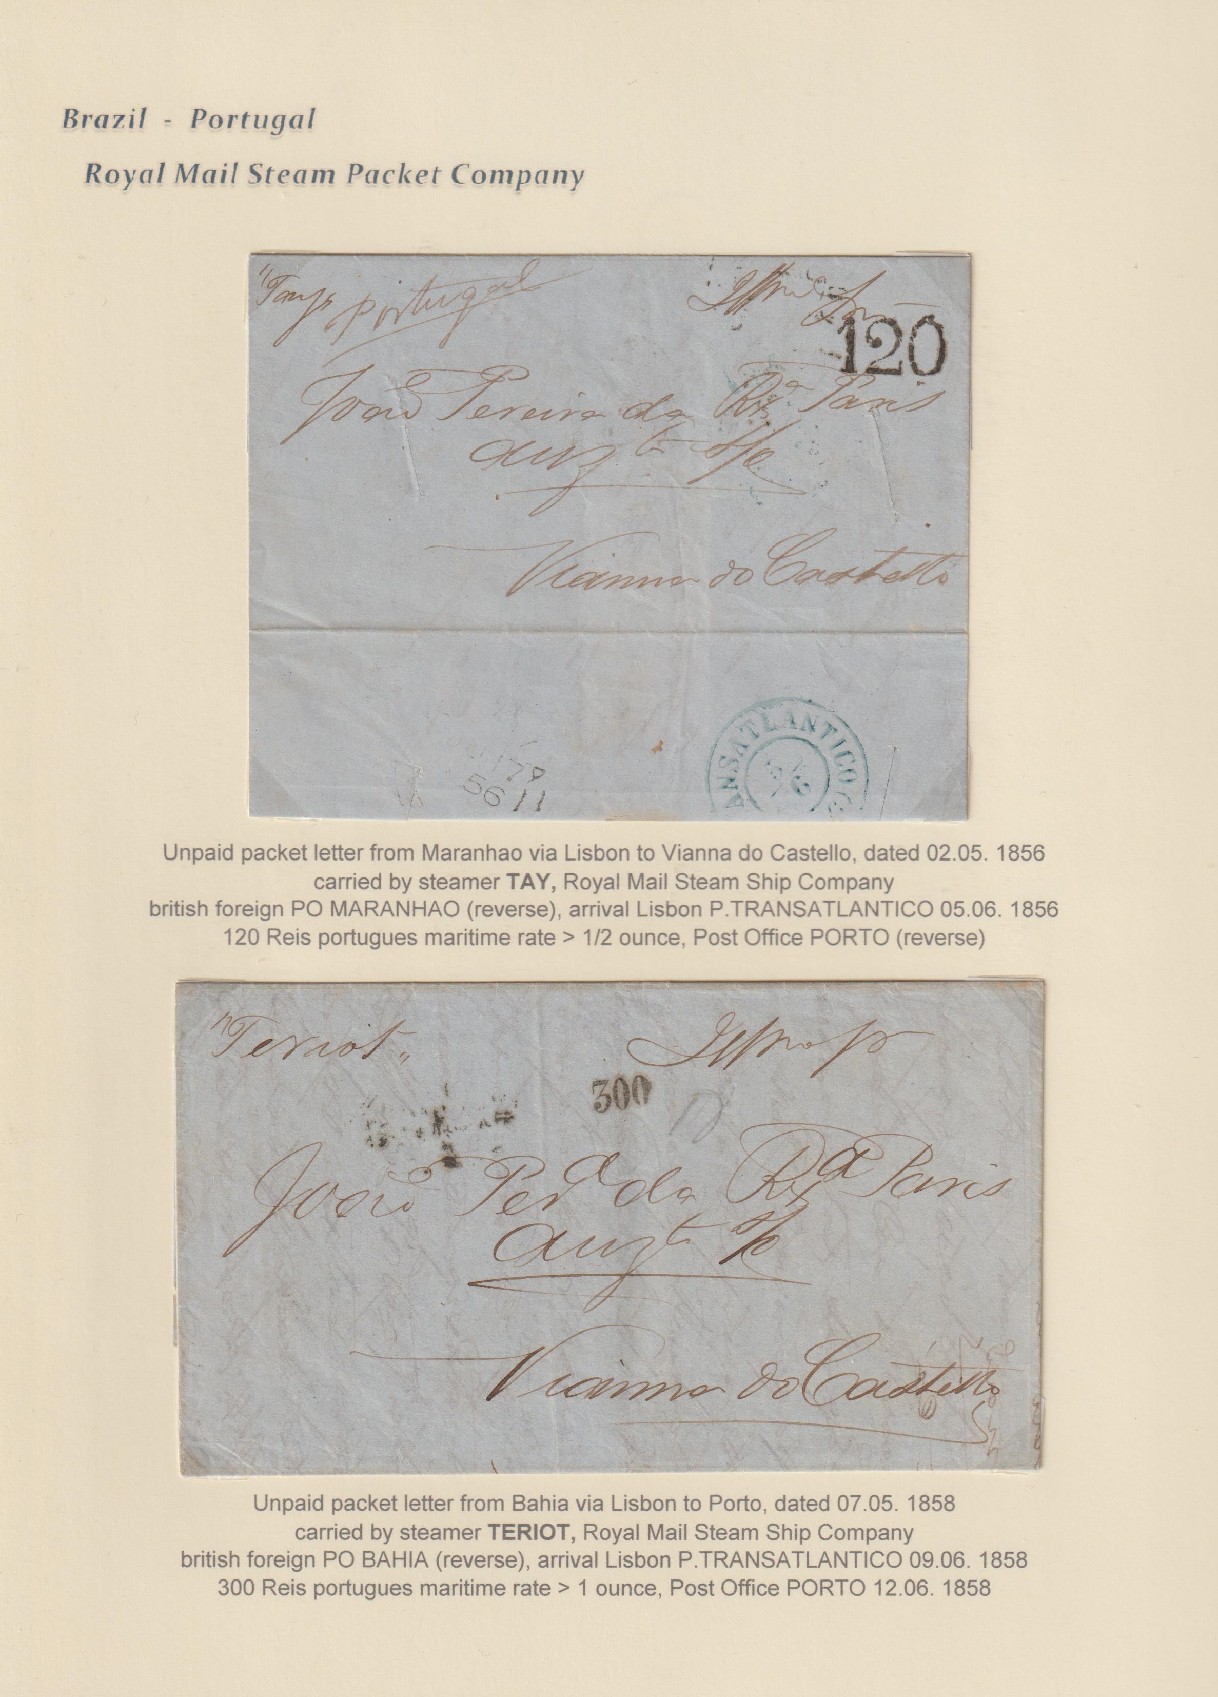 Brazil - Portugal
Royal Mail Steam Packet Company
"Tay" portugal
120
João Pereira da Rª Paris
auzte s/c
Vianna do Castello
ANSATLANTICO
Unpaid packet letter from Maranhao via Lisbon to Vianna do Castello, dated 02.05. 1856
carried by steamer TAY, Royal Mail Steam Ship Company
british foreign PO MARANHAO (reverse), arrival Lisbon P.TRANSATLANTICO 05.06. 1856
120 Reis portugues maritime rate > 1/2 ounce, Post Office PORTO (reverse)
"Teriot"
300
João Perª da Rª Paris
auzte s/c
Vianna do Castello
Unpaid packet letter from Bahia via Lisbon to Porto, dated 07.05. 1858
carried by steamer TERIOT, Royal Mail Steam Ship Company
british foreign PO BAHIA (reverse), arrival Lisbon P.TRANSATLANTICO 09.06. 1858
300 Reis portugues maritime rate > 1 ounce, Post Office PORTO 12.06. 1858